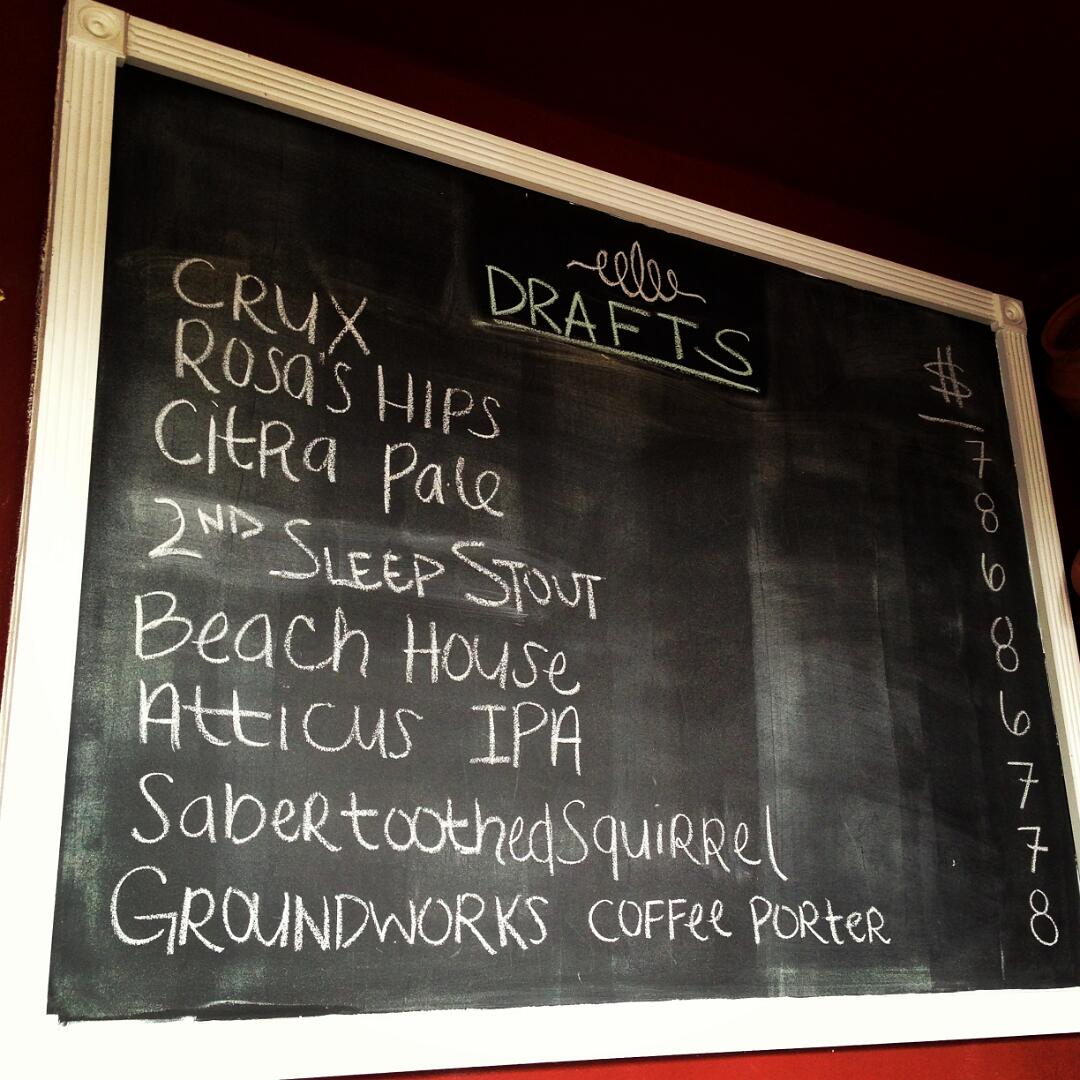 DRAFTS
$
CRUX 7
Rosa's HIPS 8
CitRa Pale 6
2ND SLEEP STOUT 8
Beach House 6
Atticus IPA 7
SabeRtoothed SquiRRel 7
GROUNDWORKS COFFee PORteR 8